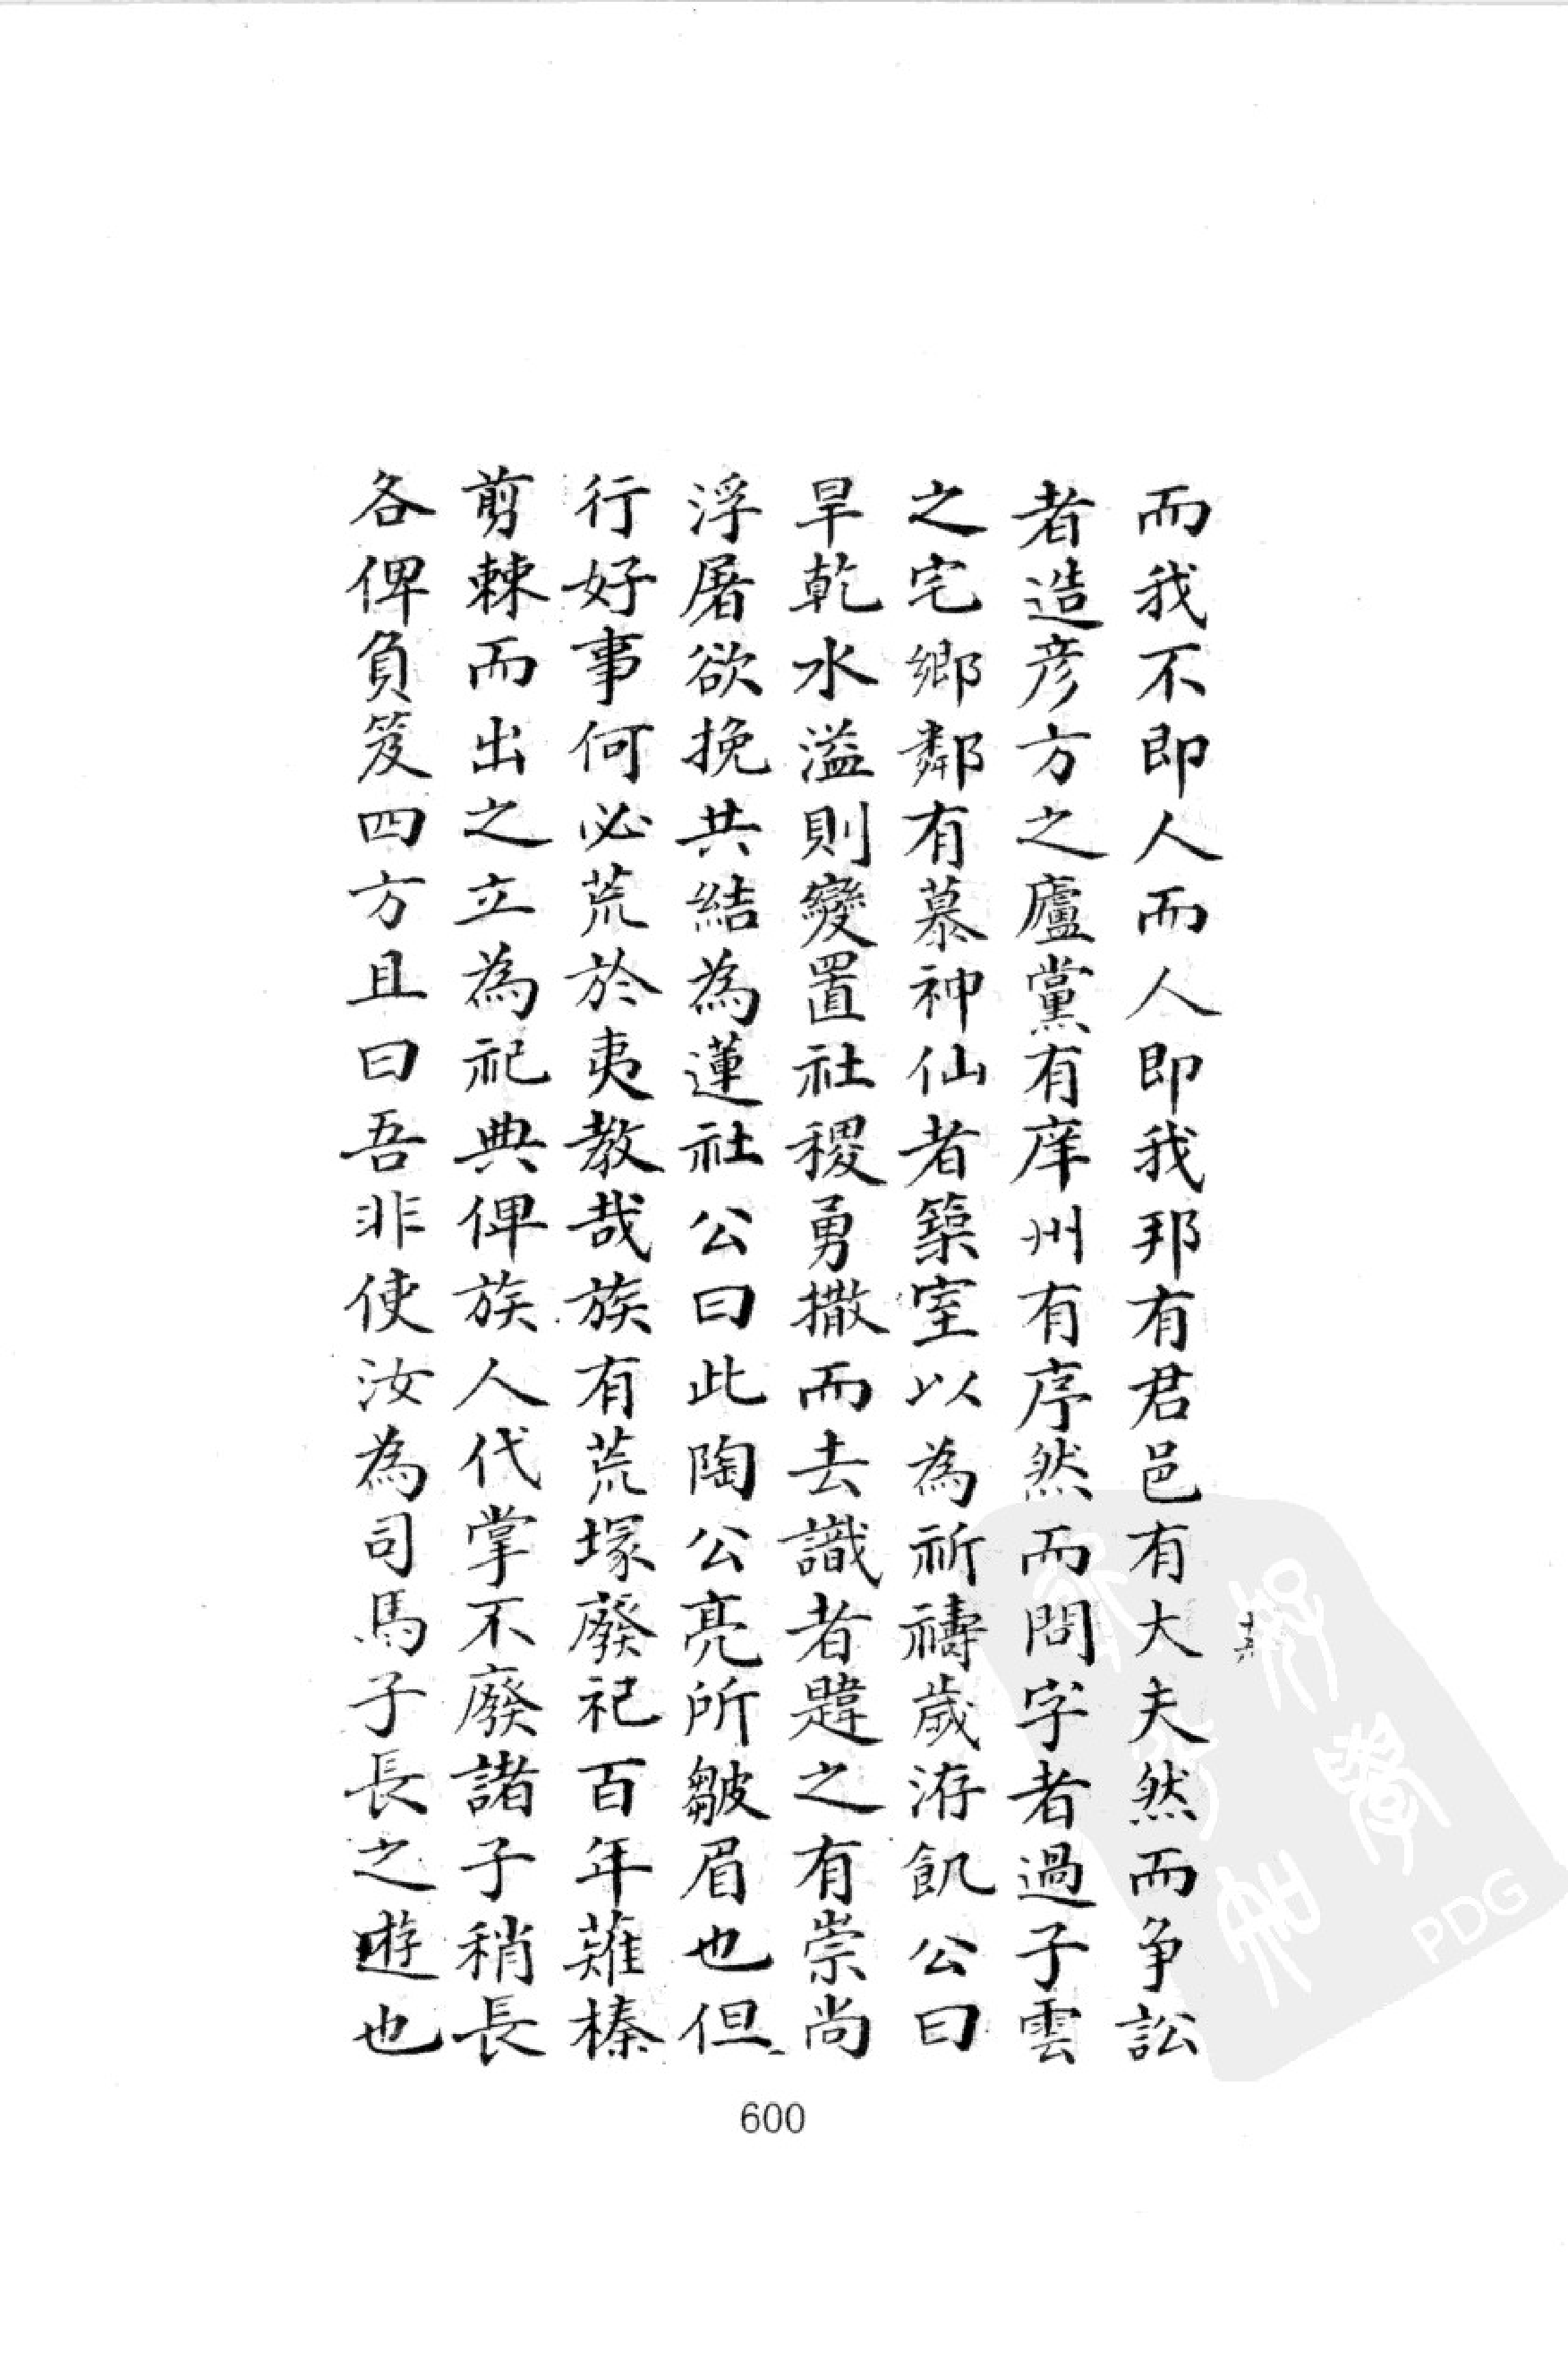 而我不即人而人即我邦有君邑有大夫然而争訟
者造彦方之廬黨有庠州有序然而問字者過子雲
之宅鄉鄰有慕神仙者築室以為祈禱歲洊飢公曰
旱乾水溢則變置社稷勇撒而去識者韙之有崇尚
浮屠欲挽共結為蓮社公曰此陶公亮所皺眉也但
行好事何必荒於夷教哉族有荒塚廢祀百年薙榛
剪棘而出之立為祀典俾族人代掌不廢諸子稍長
各俾負笈四方且曰吾非使汝為司馬子長之遊也
十六
600
PDG